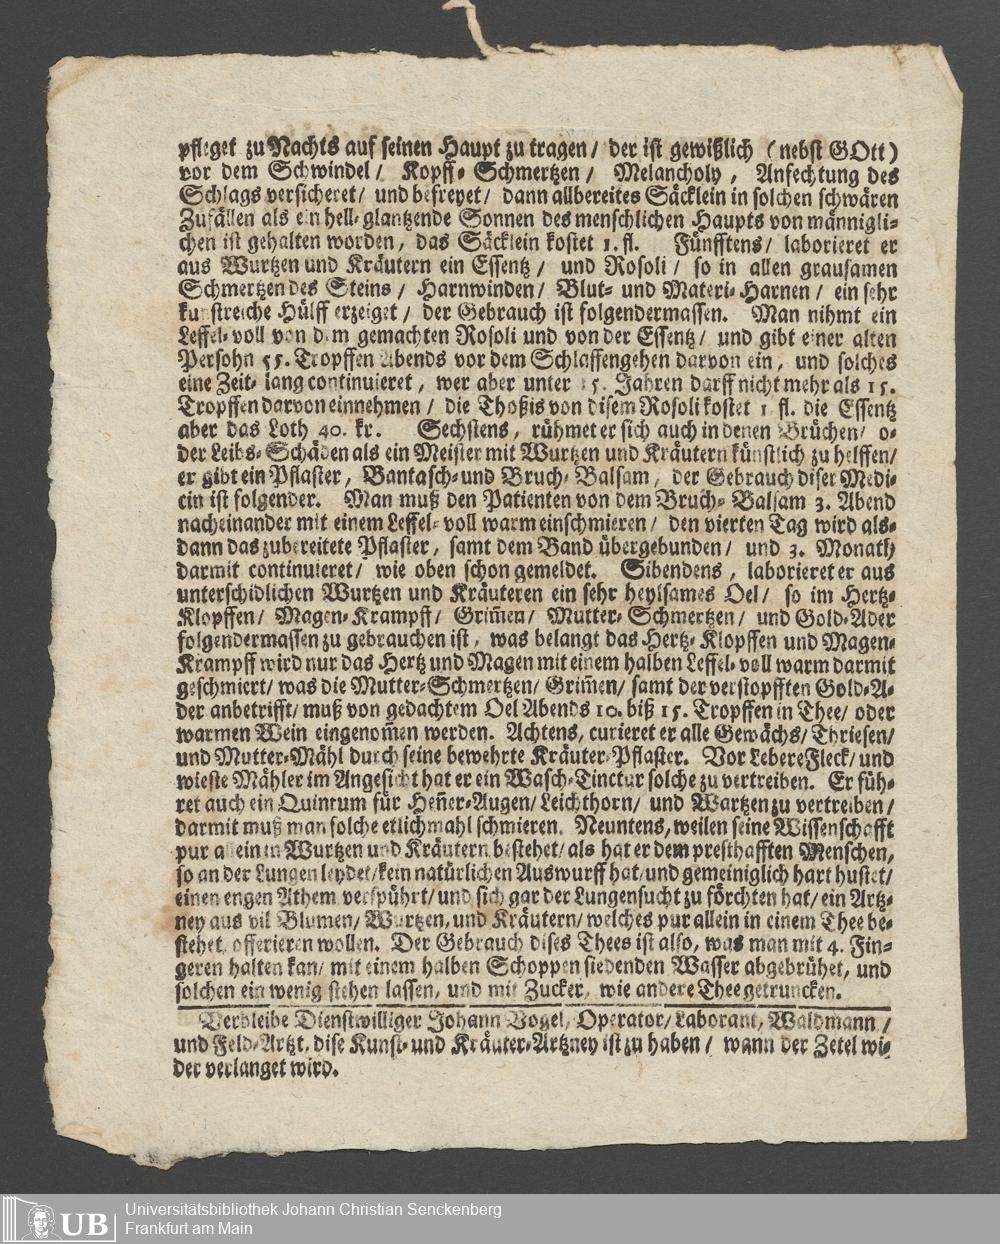 pfleget zu Nachts auf seinen Haupt zu tragen / der ist gewißlich (nebst GOtt)
vor dem Schwindel / Kopff- Schmertzen / Melancholy, Anfechtung des
Schlags versicheret / und befreyet / dann allbereites Säcklein in solchen schwären
Zufällen als ein hell-glantzende Sonnen des menschlichen Haupts von männigli-
chen ist gehalten worden, das Säcklein kostet 1. fl. Fünfftens / laborieret er
aus Wurtzen und Kräutern ein Essentz / und Rosoli / so in allen grausamen
Schmertzen des Steins / Harnwinden / Blut- und Materi-Harnen / ein sehr
kunstreiche Hülff erzeiget / der Gebrauch ist folgendermassen. Man nihmt ein
Leffel-voll von dem gemachten Rosoli und von der Essentz / und gibt einer alten
Persohn 55. Tropffen Abends vor dem Schlaffengehen darvon ein, und solches
eine Zeit-lang continuieret, wer aber unter 15. Jahren darff nicht mehr als 15.
Tropffen darvon einnehmen / die Thoßis von disem Rosoli kostet 1 fl. die Essentz
aber das Loth 40. kr. Sechstens, rühmet er sich auch in denen Brüchen / o-
der Leibs-Schäden als ein Meister mit Wurtzen und Kräutern künstlich zu helffen /
er gibt ein Pflaster, Bantasch- und Bruch-Balsam, der Gebrauch diser Medi-
cin ist folgender. Man muß den Patienten von dem Bruch-Balsam 3. Abend
nacheinander mit einem Leffel-voll warm einschmieren / den vierten Tag wird als-
dann das zubereitete Pflaster, samt dem Band übergebunden / und 3. Monath
darmit continuieret / wie oben schon gemeldet. Sibendens, laborieret er aus
unterschidlichen Wurtzen und Kräuteren ein sehr heylsames Oel / so im Hertz-
Klopffen / Magen-Krampff / Grim̃en / Mutter-Schmertzen / und Gold-Ader
folgendermassen zu gebrauchen ist, was belangt das Hertz-Klopffen und Magen-
Krampff wird nur das Hertz und Magen mit einem halben Leffel-voll warm darmit
geschmiert / was die Mutter-Schmertzen / Grim̃en / samt der verstopfften Gold-A-
der anbetrifft / muß von gedachtem Oel Abends 10. biß 15. Tropffen in Thee / oder
warmen Wein eingenom̃en werden. Achtens, curieret er alle Gewächs / Thriesen /
und Mutter-Mähl durch seine bewehrte Kräuter-Pflaster. Vor Lebere Fleck / und
wieste Mähler im Angesicht hat er ein Wasch-Tinctur solche zu vertreiben. Er füh-
ret auch ein Quintum für Hen̄er-Augen / Leichthorn / und Wartzen zu vertreiben /
darmit muß man solche etlichmahl schmieren. Neuntens, weilen seine Wissenschafft
pur allein in Wurtzen und Kräutern bestehet / als hat er dem presthafften Menschen,
so an der Lungen leydet / kein natürlichen Auswurff hat / und gemeiniglich hart hustet /
einen engen Athem verspührt / und sich gar der Lungensucht zu förchten hat / ein Artz-
ney aus vil Blumen / Wurtzen, und Kräutern / welches pur allein in einem Thee be-
stehet, offerieren wollen. Der Gebrauch dises Thees ist also, was man mit 4. Fin-
geren halten kan / mit einem halben Schoppen siedenden Wasser abgebrühet, und
solchen ein wenig stehen lassen, und mit Zucker, wie andere Thee getruncken.
Verbleibe Dienstwilliger Johann Vogel, Operator / Laborant, Waldmann /
und Feld-Artzt, dise Kunst- und Kräuter-Artzney ist zu haben / wann der Zetel wi-
der verlanget wird.
UB
Universitätsbibliothek Johann Christian Senckenberg
Frankfurt am Main